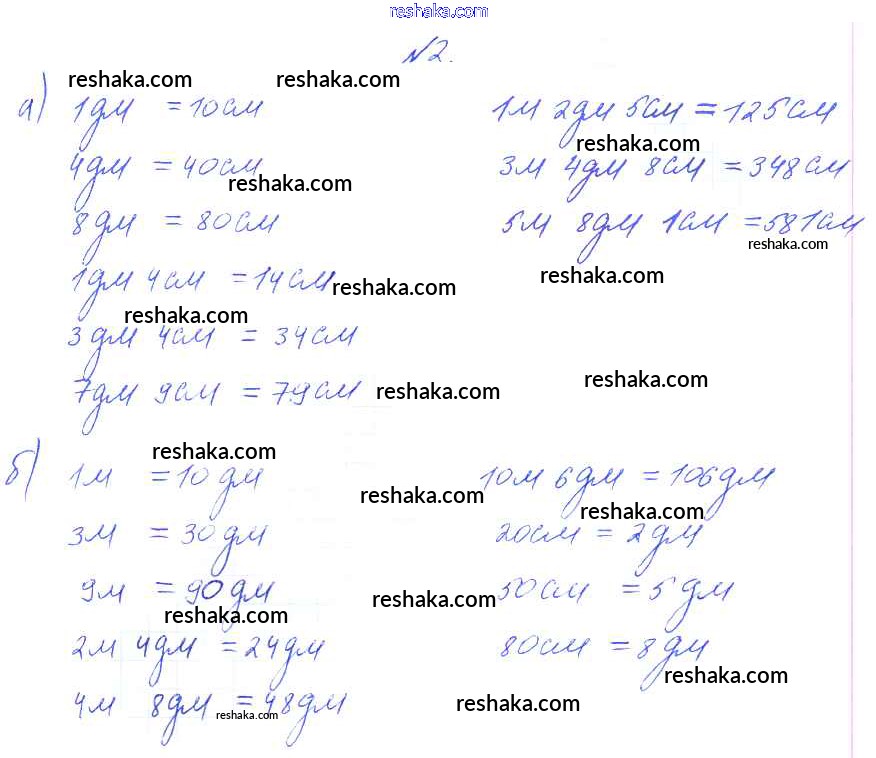 reshaka.com
№2.
reshaka.com reshaka.com
а) 1дм = 10см
1м 2дм 5см = 125см
reshaka.com
4дм = 40см
3м 4дм 8см = 348см
reshaka.com
8дм = 80см
5м 8дм 1см = 581см
reshaka.com
1дм 4см = 14см
reshaka.com
reshaka.com
reshaka.com
3дм 4см = 34см
7дм 9см = 79см
reshaka.com
reshaka.com
reshaka.com
б) 1м = 10дм
10м 6дм = 106дм
reshaka.com
reshaka.com
3м = 30дм
20см = 2дм
9м = 90дм
50см = 5дм
reshaka.com
reshaka.com
2м 4дм = 24дм
80см = 8дм
reshaka.com
4м 8дм = 48дм
reshaka.com
reshaka.com